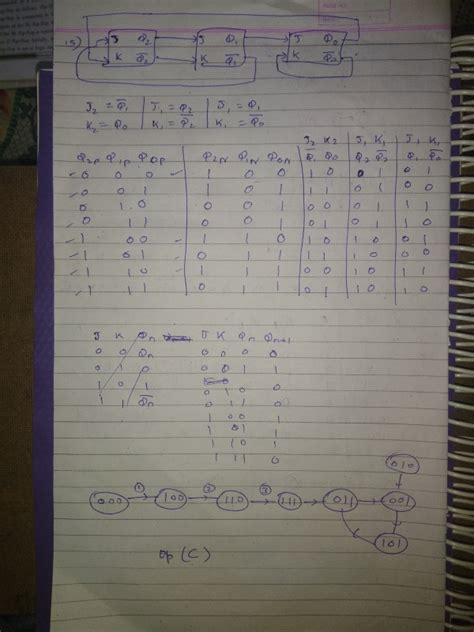 15)
J Q₂ J Q₁ J Q₀
K Q̄₂ K Q̄₁ K Q̄₀
J₂ = Q̄₁ | J₁ = Q₂ | J₁ = Q₁
K₂ = Q₀ | K₁ = Q̄₂ | K₁ = Q̄₀
J₂ K₂ J₁ K₁ J K₁
Q₂ₚ Q₁ₚ Q₀ₚ Q₂ₙ Q₁ₙ Q₀ₙ Q̄₁ Q₀ Q₂ Q̄₂ Q₁ Q̄₀
0 0 0 1 0 0 1 0 0 1 0 1
0 0 1 1 0 1 1 1 0 1 0 0
0 1 0 0 0 1 0 0 0 1 1 1
0 1 1 0 0 1 0 1 0 1 1 0
1 0 0 1 1 0 1 0 1 0 0 1
1 0 1 0 1 1 1 1 1 0 0 0
1 1 0 1 1 1 0 0 1 0 1 1
1 1 1 0 1 1 0 1 1 0 1 0
J K Qₙ J K Qₙ Qₙ₊₁
0 0 Qₙ 0 0 0 0
0 1 0 0 0 1 1
1 0 1 0 1 0 0
1 1 Q̄ₙ 0 1 1 0
1 0 0 1
1 0 1 1
1 1 0 1
1 1 1 0
010
① ② ③
000 100 110 111 011 001
101
op (C)